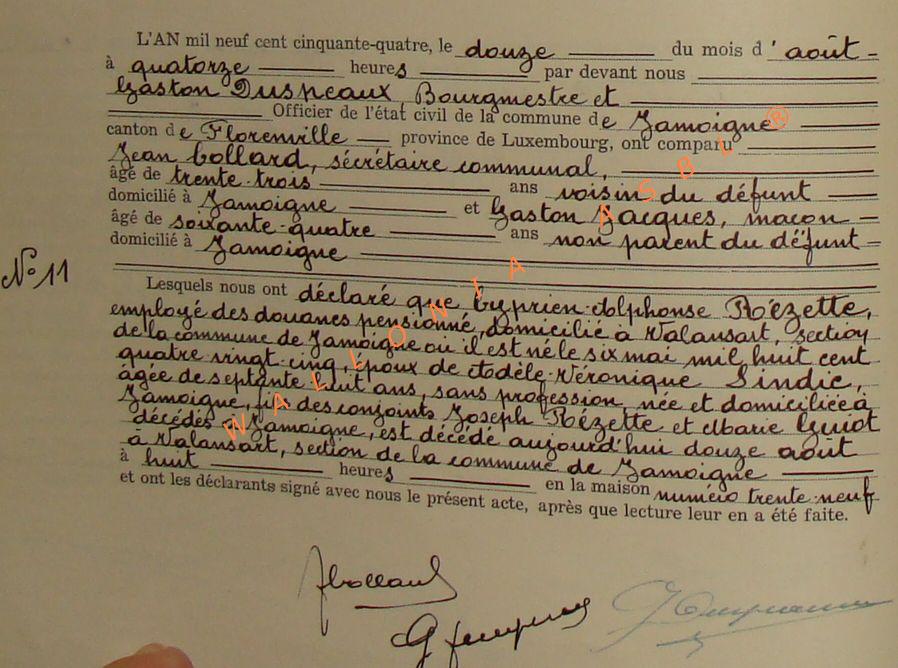 L'AN mil neuf cent cinquante-quatre, le douze du mois d'août
à quatorze heures par devant nous
Gaston Duspeaux Bourgmestre et
Officier de l'état civil de la commune de Jamoigne
canton de Florenville province de Luxembourg, ont comparu
Jean Collard, secrétaire communal,
âgé de trente-trois ans voisin du défunt
domicilié à Jamoigne et Gaston Jacques, maçon
âgé de soixante-quatre ans non parent du défunt
domicilié à Jamoigne
N° 11
Lesquels nous ont déclaré que Cyprien-Alphonse Rézette,
employé des douanes pensionné, domicilié à Valansart, section
de la commune de Jamoigne où il est né le six mai mil huit cent
quatre vingt-cinq, époux de Adèle-Véronique Lindic,
âgée de septante huit ans, sans profession née et domiciliée à
Jamoigne, fils des conjoints Joseph Rézette et Marie Guiot
décédés à Jamoigne, est décédé aujourd'hui douze août
à Valansart, section de la commune de Jamoigne
à huit heures en la maison numéro trente-neuf
et ont les déclarants signé avec nous le présent acte, après que lecture leur en a été faite.
WALLONIA ASBL ®
JCollard